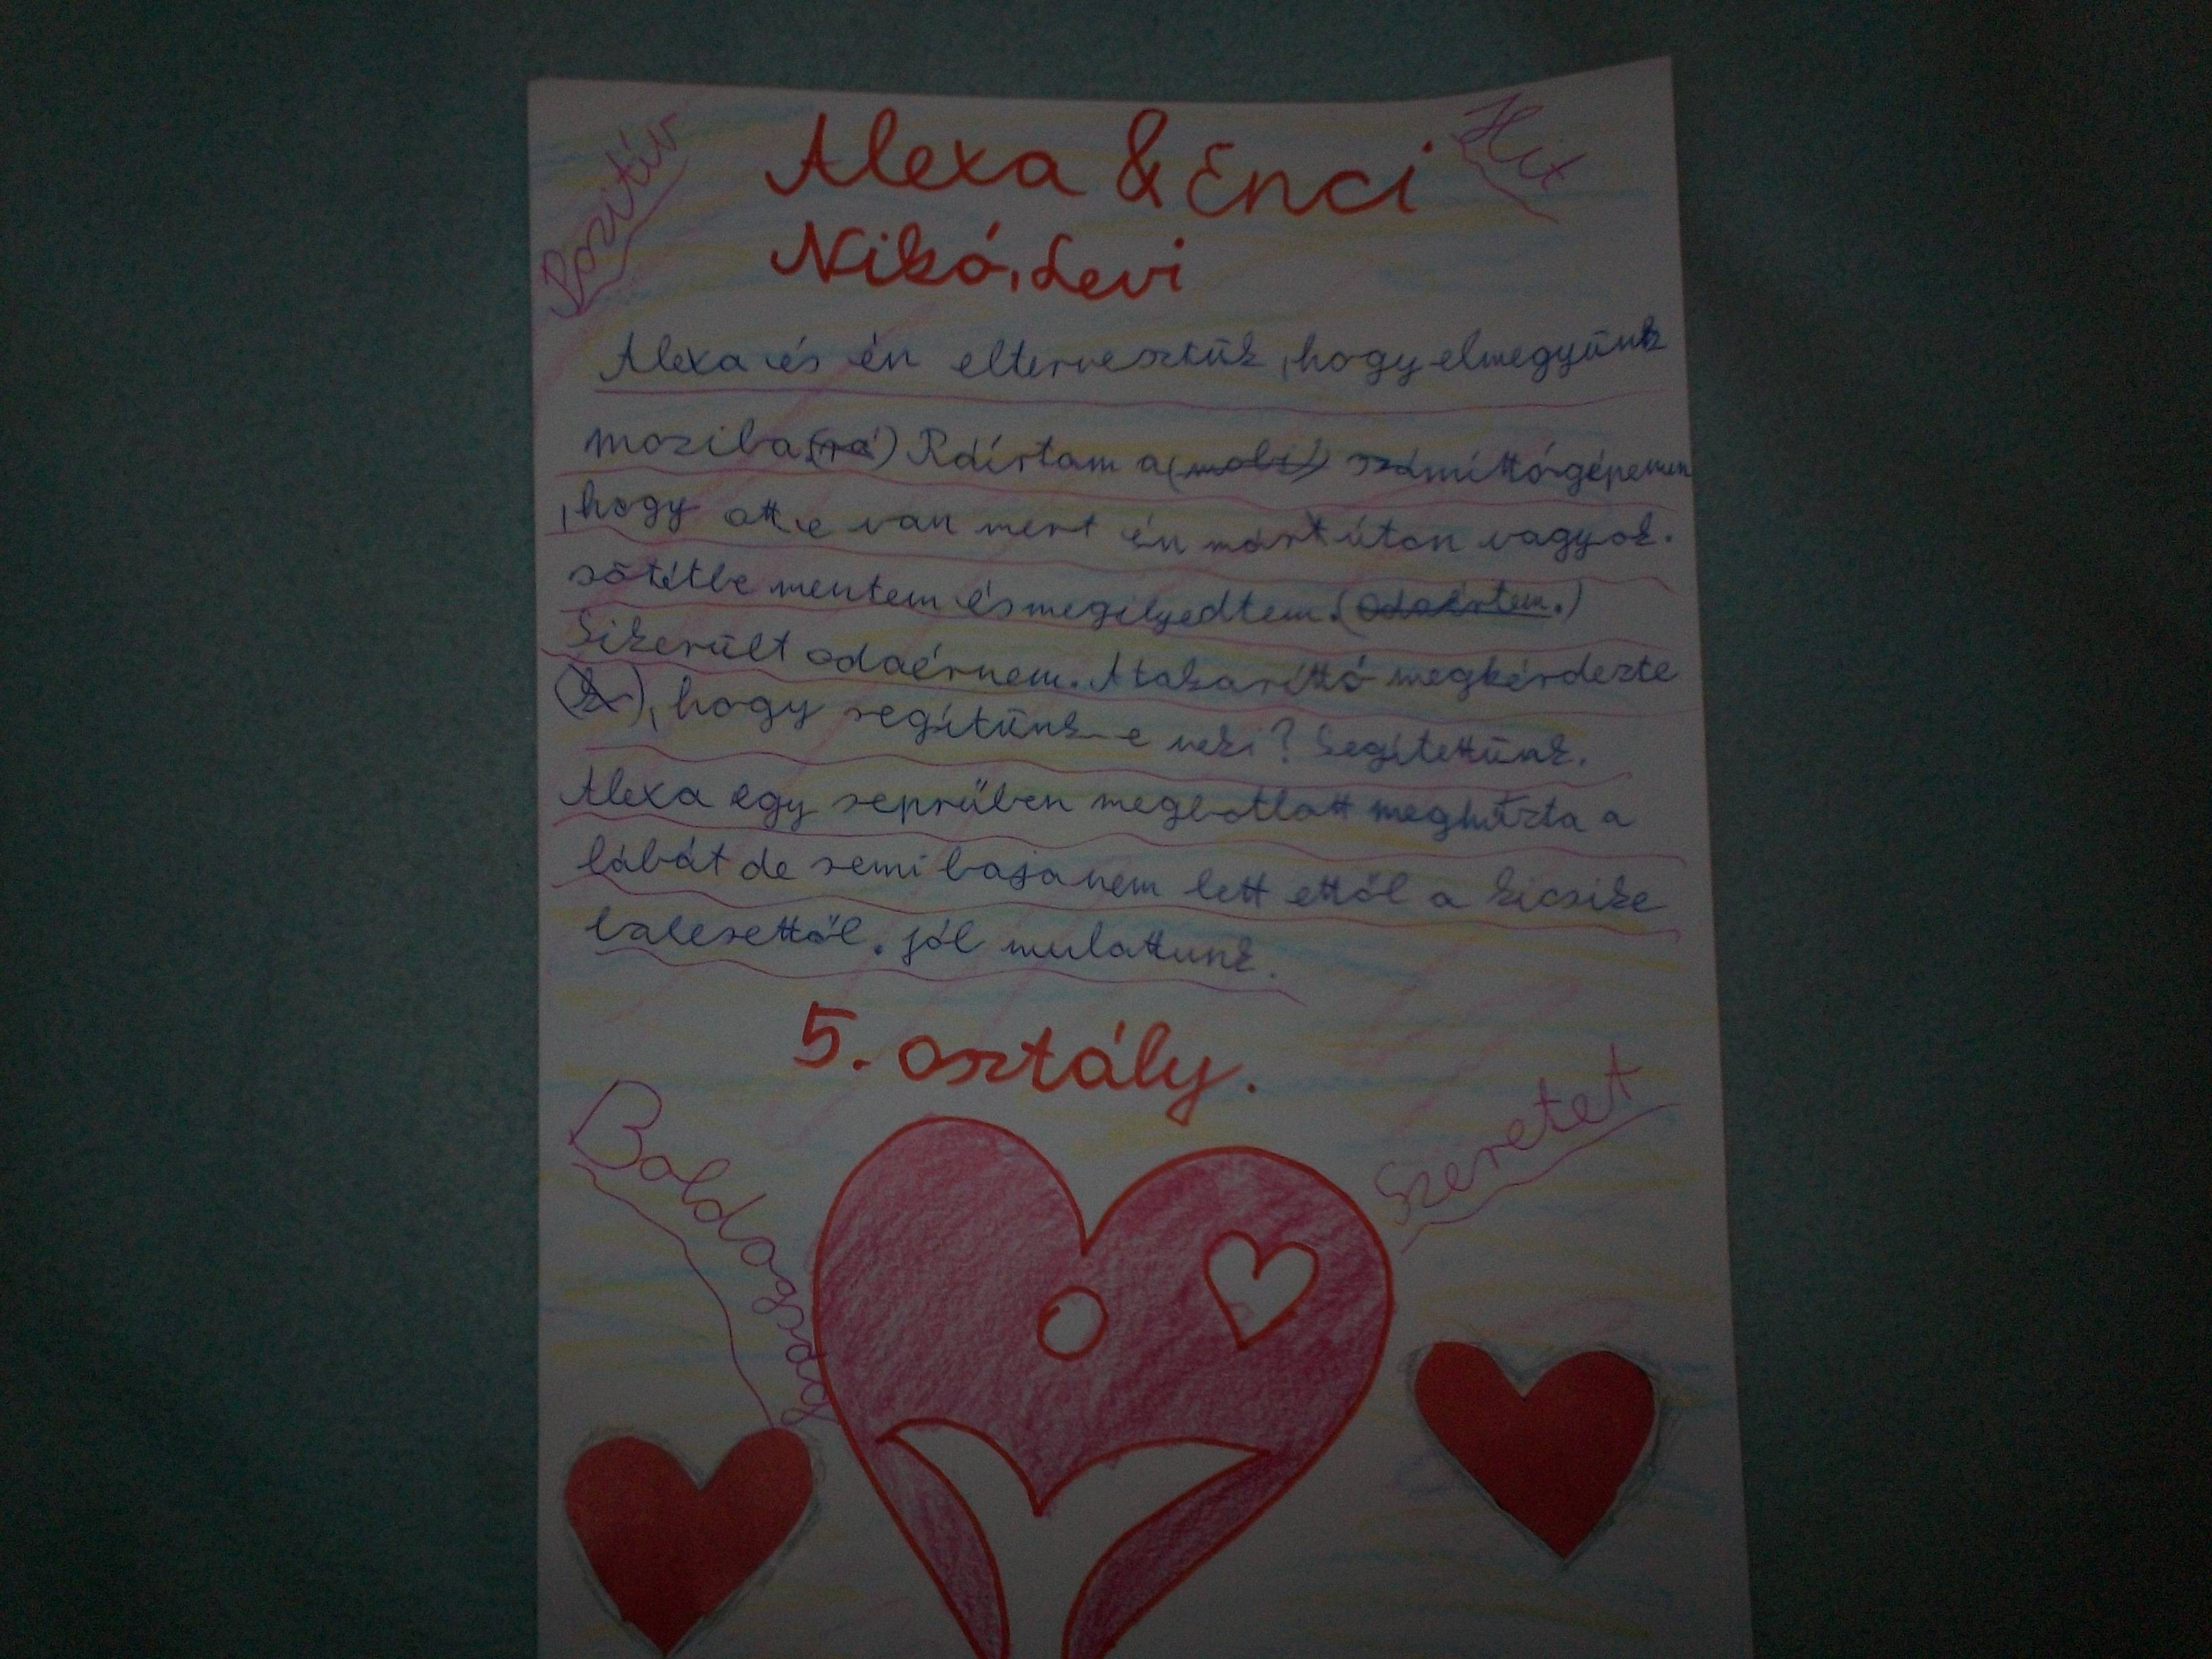 Pozitív
Hit
Alexa & Enci
Nikó, Levi
Alexa és én elterveztük, hogy elmegyünk
moziba (rá) Ráírtam a (mobi) számíttógépemen
, hogy ott e van mert én márt úton vagyok.
sötétbe mentem és megilyedtem. (Odaértem.)
Sikerült odaérnem. A takaríttó megkérdezte
, hogy segítünk-e neki? Segítettünk.
Alexa egy seprűben megbotlott meghúzta a
lábát de semi baja nem lett ettől a kicsike
balesettől. jól mulattunk.
5. osztály.
Boldogság
Szeretet